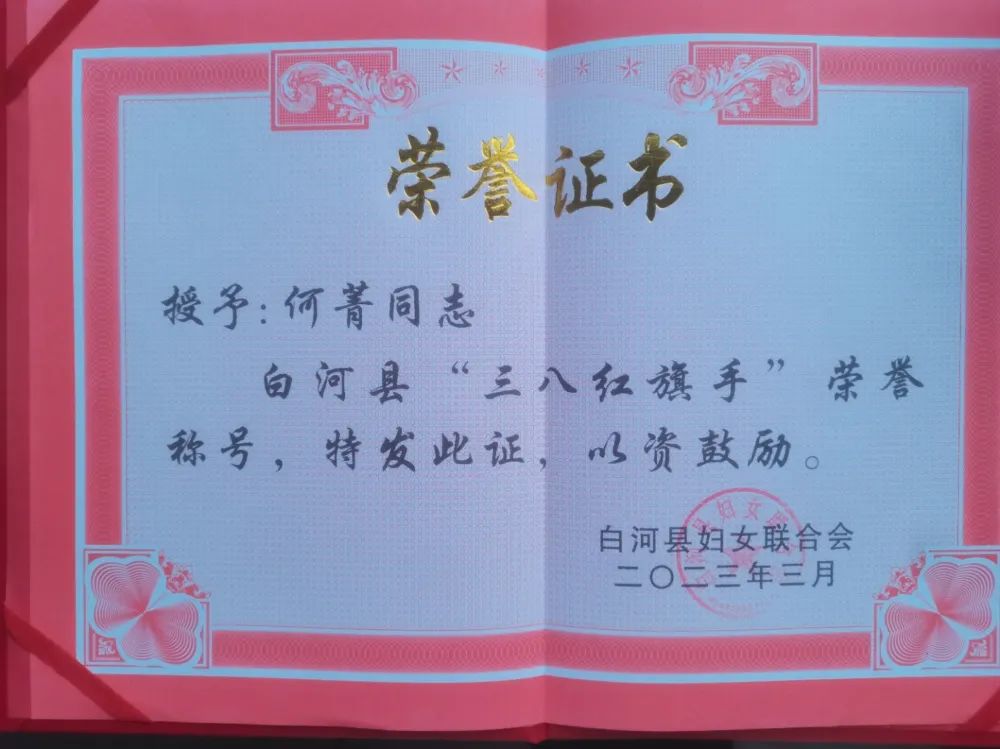 荣誉证书
授予:何菁同志
白河县“三八红旗手”荣誉
称号，特发此证，以资鼓励。
白河县妇女联合会
二〇二三年三月